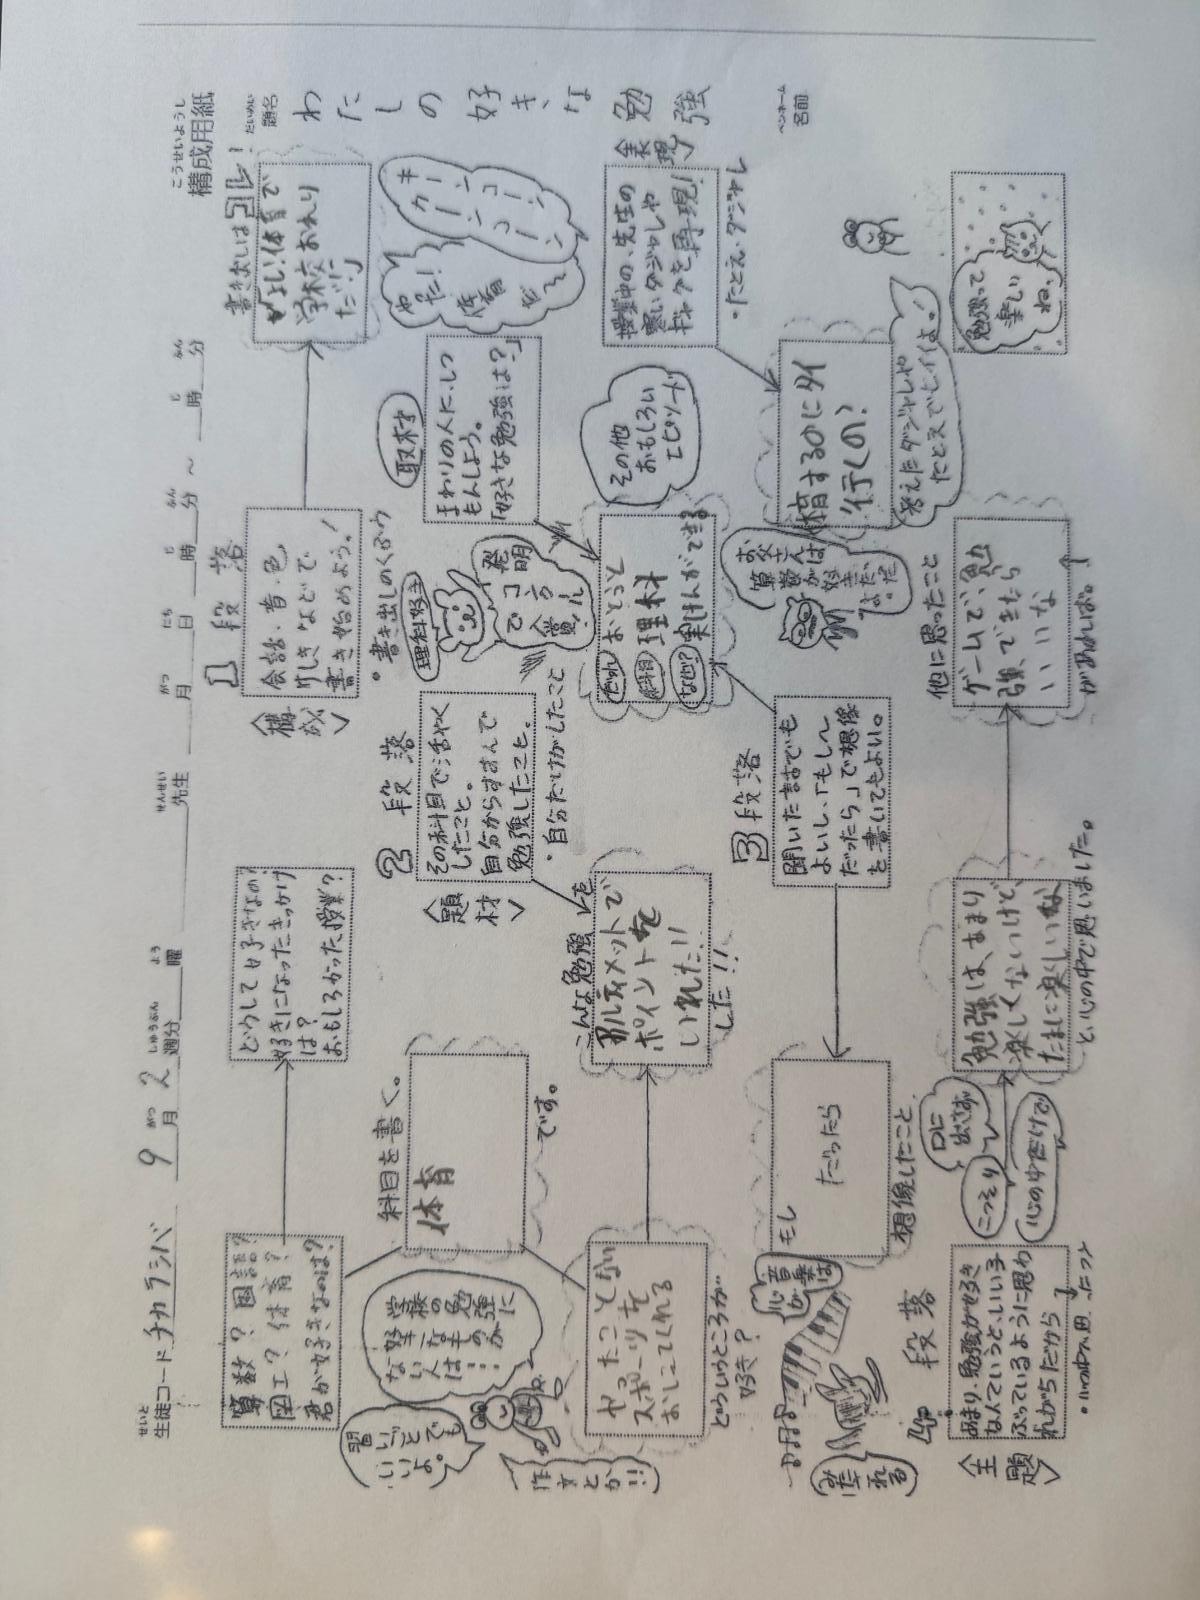 こうせいようし
構成用紙
せいと
生徒コード チカラシバ 9月2週分 曜 先生 月 日 時 分 ～ 時 分
だいめい
題名
わたしの好きな勉強
ペンネーム
名前
1段落
<構成>
算数？国語？
図工？体育？
君が好きなのは？
どうして好きなの？
好きになったきっかけ
は？
おもしろかった授業？
会話・音・色
けしきなどで
書き始めよう！
・書き出しのくふう
書き出しはコレ！
学校
だ！」
キーンコーン
カーンコーン
やった！
体育
だ～
習いごとでも
いいよ。
学校の勉強に
好きなものが
ない人は…
科目を書く。
体育
です。
2段落
<題材>
その科目で活やく
したこと。
自分からすすんで
勉強したこと。
・自分だけがしたこと
理科好き
発明
でノーベル賞
取材
まわりの人にしつ
もんしよう。
「好きな勉強は？」
やったことない
スポーツを
おしえてくれる
どういうところが
好き？
こんな勉強を
アルティメットで
ポイントを
いれた!!
した!!
だれ おとうと
科目 理科
なぜ？ 実けんができる
その他
おもしろい
エピソード
<表現>
授業中の、先生の
寒いダジャレや
ギャグを再現！
・たとえ・ダジャレ
3段落
聞いた話でも
よいし、「もし～
だったら」で想像
を書いてもよい。
音楽は
心が
もし
だったら
想像したこと
お父さんは
算数が
好き
だったよ
行くの？
考えたダジャレや
たとえでもイイよ！
4段落
<主題>
あまり、勉強が好き
なんていうと、いい子
ぶっているように思わ
れがちだから
口に
出さず
こっそり
心の中だけで
勉強は、あまり
楽しくないけど、
たまに楽しいな
と、心の中で思いました。
他に思ったこと
ゲームで、勉
強できたら
いいな
があれば。
勉強って
楽しい
ね、